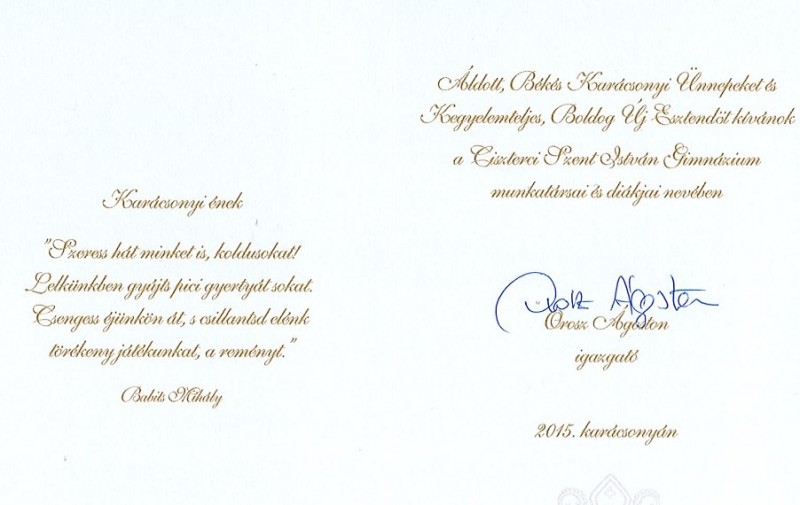 Karácsonyi ének
"Szeress hát minket is, koldusokat!
Lelkünkben gyújts pici gyertyát sokat.
Csengess éjünkön át, s csillantsd elénk
törékeny játékunkat, a reményt."
Babits Mihály
Áldott, Békés Karácsonyi Ünnepeket és
Kegyelemteljes, Boldog Új Esztendőt kívánok
a Ciszterci Szent István Gimnázium
munkatársai és diákjai nevében
Orosz Ágoston
Orosz Ágoston
igazgató
2015. karácsonyán